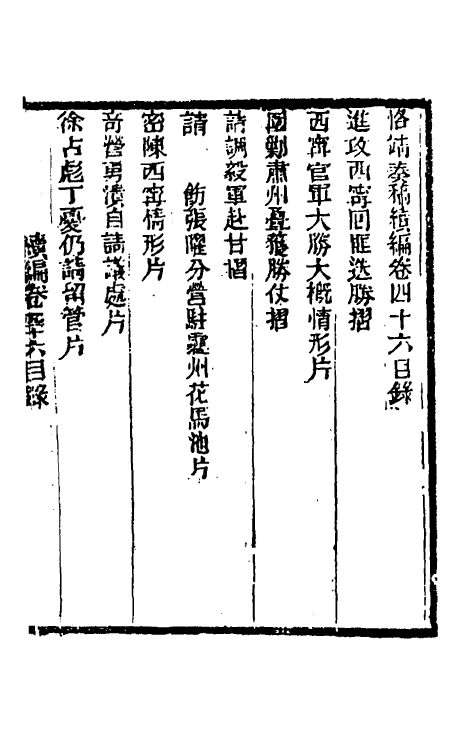 恪靖奏稿續編卷四十六目錄
進攻西寧回匪迭勝摺
西寧官軍大勝大概情形片
圍勦肅州疊獲勝仗摺
請調毅軍赴甘摺
請　飭張曜分營駐靈州花馬池片
密陳西寧情形片
奇營勇潰自請議處片
徐占彪丁憂仍請留營片
續編卷四十六目錄